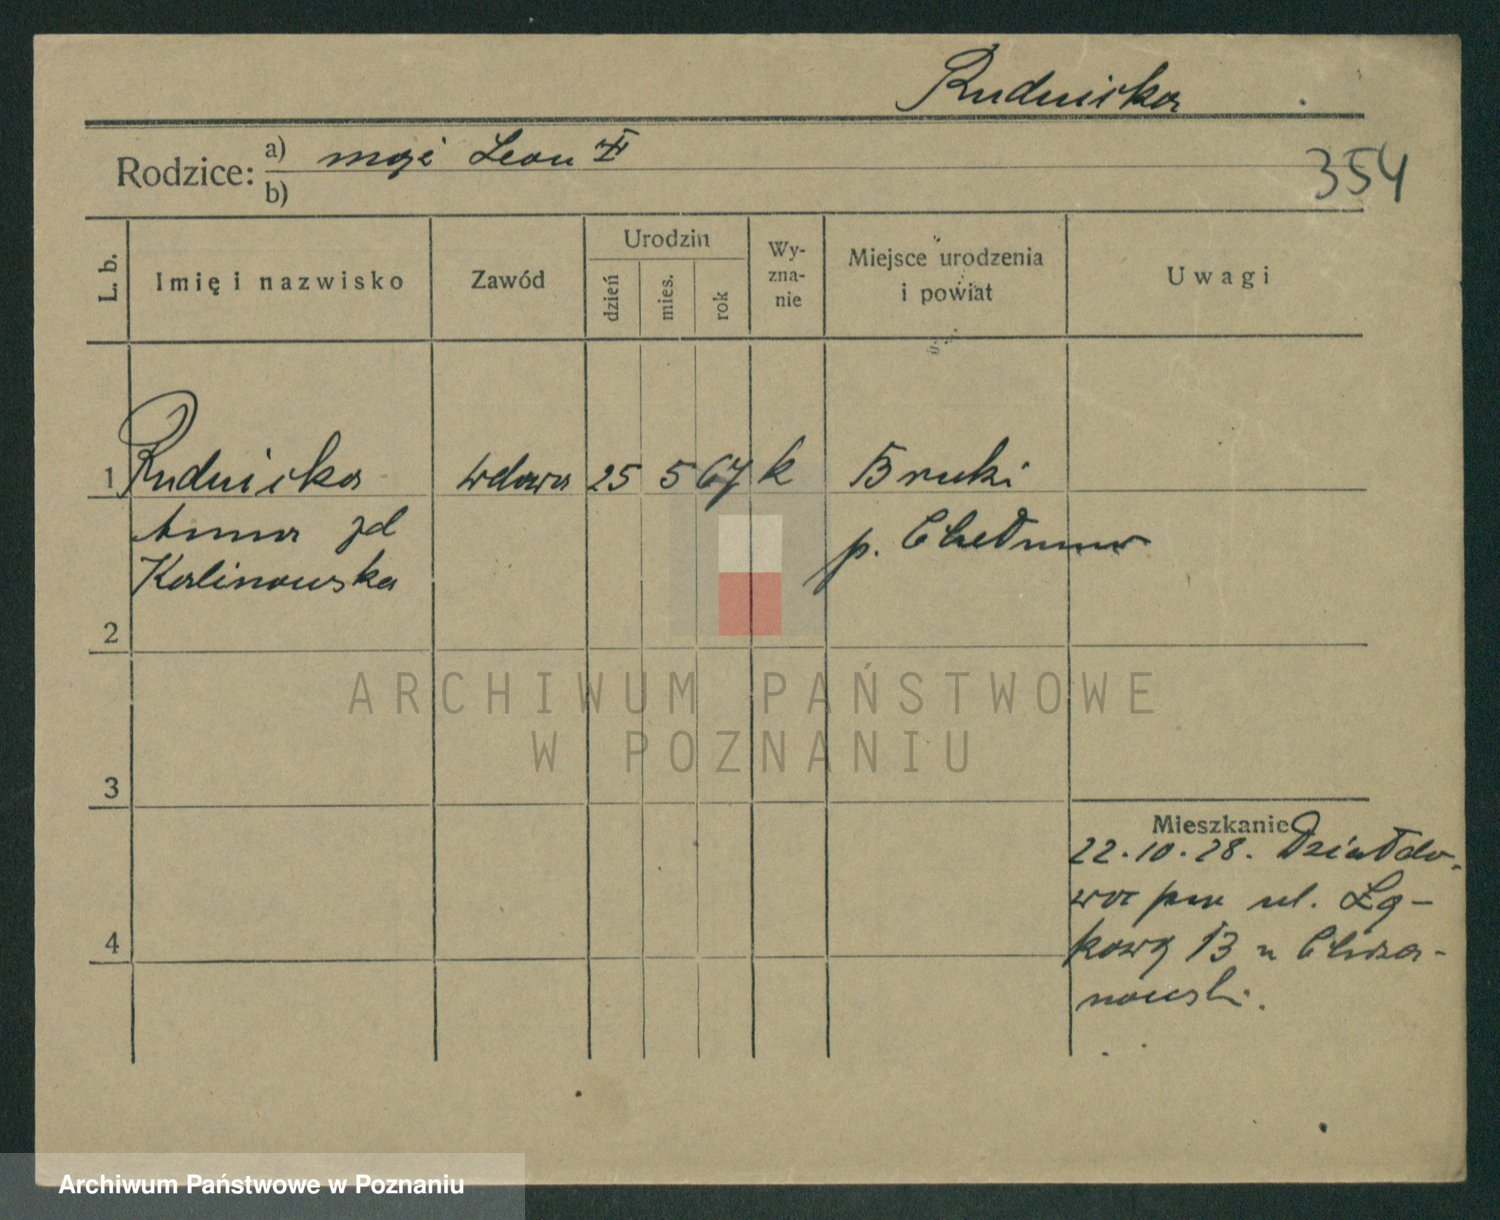 Rudnicka
Rodzice: a) mąż Leon ✝
b)
354
L. b.
Imię i nazwisko
Zawód
Urodzin
dzień
mies.
rok
Wy-
zna-
nie
Miejsce urodzenia
i powiat
Uwagi
1 Rudnicka wdowa 25 5 67 k Bruki
Anna zd p. Chełmno
Kalinowska
2
3
4
Mieszkanie
22.10.28. Działdo-
wo pow ul. Łą-
kowa 13 u Chrza-
nowski.
ARCHIWUM PAŃSTWOWE
W POZNANIU
Archiwum Państwowe w Poznaniu